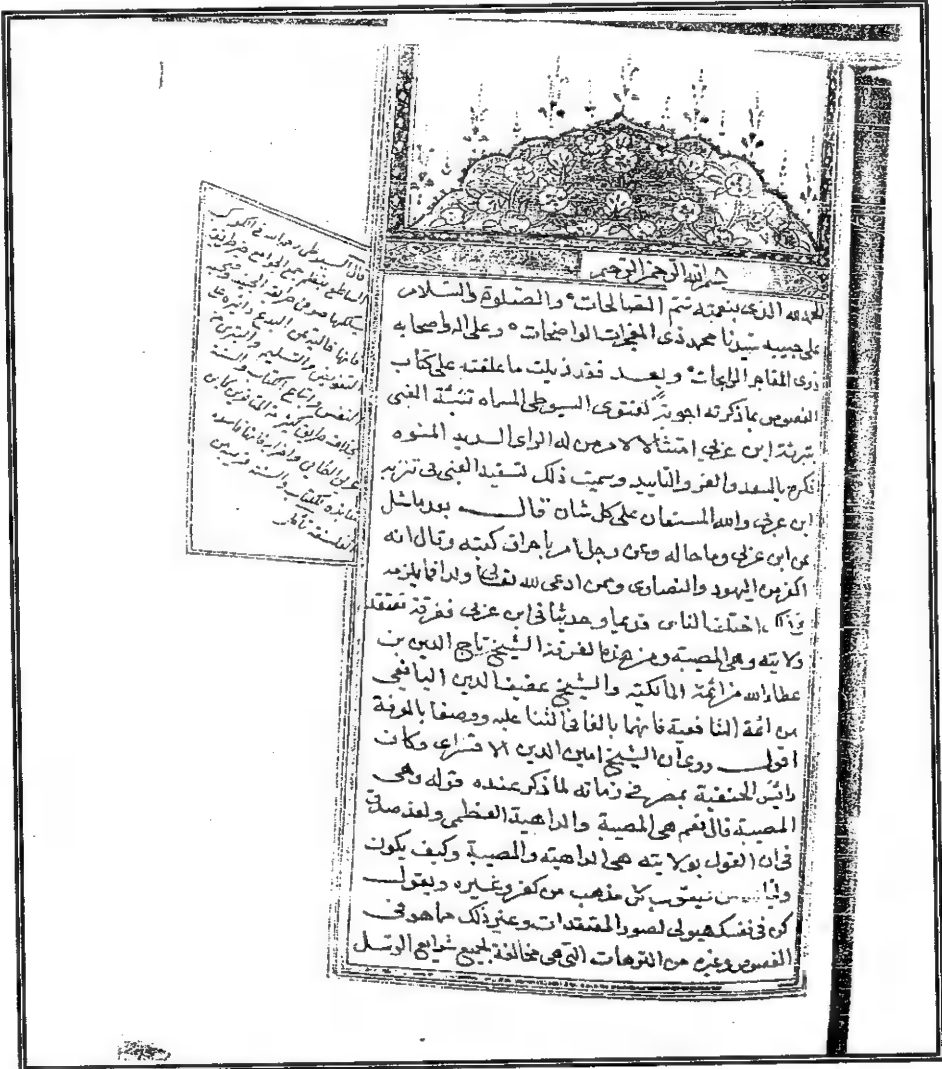 بسم الله الرحمن الرحيم
الحمد لله الذى بنعمته تتم الصالحات والصلوة والسلام
على حبيبه سيدنا محمد ذى المعجزات الواضحات وعلى اله واصحابه
ذوى المفاخر الرابحات وبعد فقد ذيلت ما علقته على كتاب
الفصوص بما ذكرته اجوبة لفتوى السيوطى المسماه تنبئة الغبى
بتبرئة ابن عربى امتثالا لامر من له الراى السديد المنوه
فكره بالسعد والعز والتاييد وسميت ذلك تسفيه الغبى فى تنزيه
ابن عربى والله المستعان على كل شان قال بعد ما سئل
عن ابن عربى وما حاله وعن رجل امر باحراق كتبه وقال انه
اكفر من اليهود والنصارى ومن ادعى لله تعالى ولدا فما يلزمه
اختلف الناس قديما وحديثا فى ابن عربى ففرقة تعتقد
ولايته وهى المصيبة ومن هذه الفرقة الشيخ تاج الدين بن
عطاء الله من ائمة المالكية والشيخ عفيف الدين اليافعى
من ائمة الشافعية فانهما بالغا فى الثنا عليه ووصفا بالمعرفة
اقول روى ان الشيخ امين الدين الاقصراى وكان
رائس الحنفية بمصر فى زمانه لما ذكر عنده قوله وهى
المصيبة قال نعم هى المصيبة والداهية العظمى ولقد صدق
فى ان القول بولايته هى الداهية والمصيبة وكيف يكون
وليا من يصوب كل مذهب من كفر وغيره ويقول
كن فى نفسك هيولى لصور المعتقدات وغير ذلك مما هو فى
الفصوص وغيره من الترهات التى هى مخالفة لجميع شرايع الرسل
قال السيوطى رحمه الله فى الكوكب
الساطع بنظم جمع الجوامع خير طريقة
يسلكها صوفى طريقة الجنيد وصحبه
فانها خالية عن البدع دائرة على
التفويض والتسليم والتبرى من
النفس واتباع الكتاب والسنة
بخلاف طريق كثير من المتاخرين كابن
عربى الطائى واضرابه فانها فاسدة
منابذة للكتاب والسنة قريبة من
الفلسفة